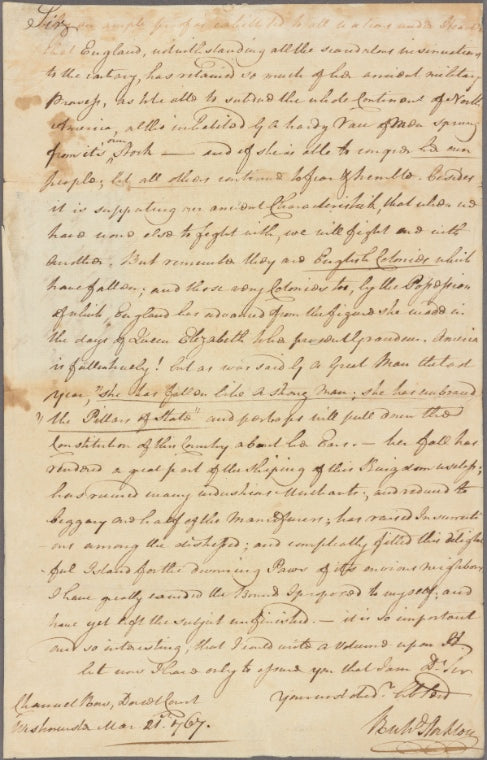 Sir an ample proof exhibited to all nations under Heaven
that England, notwithstanding all the scandalous insinuations
to the contrary, has retained so much of her ancient military
Prowess, as to be able to subdue the whole Continent of North
America, altho inhabited by a hardy race of Men sprung
from it's own Stock — and if she is able to conquer her own
people; let all others continue to fear & tremble. Besides
it is supporting our ancient Characteristick, that when we
have none else to fight with, we will fight one with
another. But remember they are English Colonies which
have fallen; and those very Colonies too, by the Possession
of which England has advanced from the figure she made in
the days of Queen Elizabeth to her present Grandeur. America
is fallen truly! but as was said by a Great Man the last
year, "she has fallen like a strong man; she has embraced
"the Pillars of State" and perhaps will pull down the
Constitution of this Country about her Ears. — her fall has
rendered a great part of the Shiping of this Kingdom useless;
has ruined many industrious Merchants; and reduced to
beggary one half of the Manufacturers; has raised Insurrecti
ons among the distressed; and compleatly fitted this delight
ful Island for the devouring Paws of its envious neighbours
I have greatly exceeded the Bound I proposed to myself, and
have yet left the subject unfinished. — it is so important
and so interesting, that I could write a volume upon it
but now I have only to assure you that I am Dr. Sir
Your most obedt.
Chanel Row, Dorset Court
Westminster Mar. 21st. 1767.
Richd. Stockton